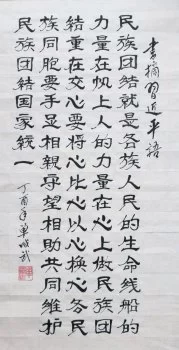 书摘习近平语
民族团结就是各族人民的生命线船的
力量在帆上人的力量在心上做民族团
结重在交心要将心比心以心换心各民
族同胞要手足相亲守望相助共同维护
民族团结国家统一
丁酉年